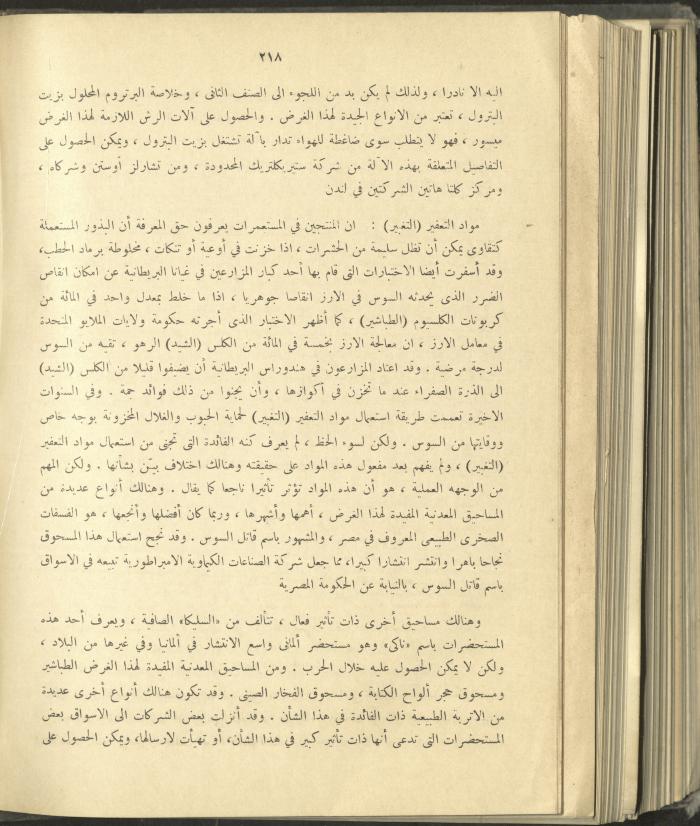 ٢١٨
اليه الا نادرا ، ولذلك لم يكن بد من اللجوء الى الصنف الثانى ، وخلاصة البرتروم المحلول بزيت
البترول ، تعتبر من الانواع الجيدة لهذا الغرض . والحصول على آلات الرش اللازمة لهذا الغرض
ميسور ، فهو لا يتطلب سوى ضاغطة للهواء تدار بآلة تشتغل بزيت البترول ، ويمكن الحصول على
التفاصيل المتعلقة بهذه الآلة من شركة ستيريكلتريك المحدودة ، ومن تشارلز أوستن وشركاه ،
ومركز كلتا هاتين الشركتين في لندن
مواد التعفير (التغبير) : ان المنتجين في المستعمرات يعرفون حق المعرفة أن البذور المستعملة
كتقاوى يمكن أن تظل سليمة من الحشرات ، اذا خزنت في أوعية أو تنكات ، مخلوطة برماد الحطب،
وقد أسفرت أيضا الاختبارات التى قام بها أحد كبار المزارعين في غيانا البريطانية عن امكان انقاص
الضرر الذى يحدثه السوس في الارز انقاصا جوهريا ، اذا ما خلط بمعدل واحد في المائة من
كربونات الكلسيوم (الطباشير) ، كما أظهر الاختبار الذى أجرته حكومة ولايات الملايو المتحدة
في معامل الارز ، ان معالجة الارز بخمسة في المائة من الكلس (الشيد) الرهو ، تقيه من السوس
لدرجة مرضية . وقد اعتاد المزارعون في هندوراس البريطانية أن يضيفوا قليلا من الكلس (الشيد)
الى الذرة الصفراء عند ما تخزن في أكوازها ، وأن يجنوا من ذلك فوائد جمة . وفي السنوات
الاخيرة تعممت طريقة استعمال مواد التعفير (التغبير) لحماية الحبوب والغلال المخزونة بوجه خاص
ووقايتها من السوس . ولكن لسوء الحظ ، لم يعرف كنه الفائدة التى تجنى من استعمال مواد التعفير
(التغبير) ، ولم يفهم بعد مفعول هذه المواد على حقيقته وهنالك اختلاف بيّن بشأنها . ولكن المهم
من الوجهه العملية ، هو أن هذه المواد تؤثر تأثيرا ناجعا كما يقال . وهنالك أنواع عديدة من
المساحيق المعدنية المفيدة لهذا الغرض ، أهمها وأشهرها ، وربما كان أفضلها وأنجعها ، هو الفسفات
الصخرى الطبيعى المعروف في مصر ، والمشهور باسم قاتل السوس . وقد نجح استعمال هذا المسحوق
نجاحا باهرا وانتشر انتشارا كبيرا، مما جعل شركة الصناعات الكيماوية الامبراطورية تبيعه في الاسواق
باسم قاتل السوس ، بالنيابة عن الحكومة المصرية
وهنالك مساحيق أخرى ذات تأثير فعال ، تتألف من «السليكا» الصافية ، ويعرف أحد هذه
المستحضرات باسم «ناكى» وهو مستحضر ألمانى واسع الانتشار في ألمانيا وفي غيرها من البلاد ،
ولكن لا يمكن الحصول عليه خلال الحرب . ومن المساحيق المعدنية المفيدة لهذا الغرض الطباشير
ومسحوق حجر ألواح الكتابة ، ومسحوق الفخار الصينى . وقد تكون هنالك أنواع أخرى عديدة
من الاتربة الطبيعية ذات الفائدة في هذا الشأن . وقد أنزلت بعض الشركات الى الاسواق بعض
المستحضرات التى تدعى أنها ذات تأثير كبير في هذا الشأن، أو تهيأت لارسالها، ويمكن الحصول على